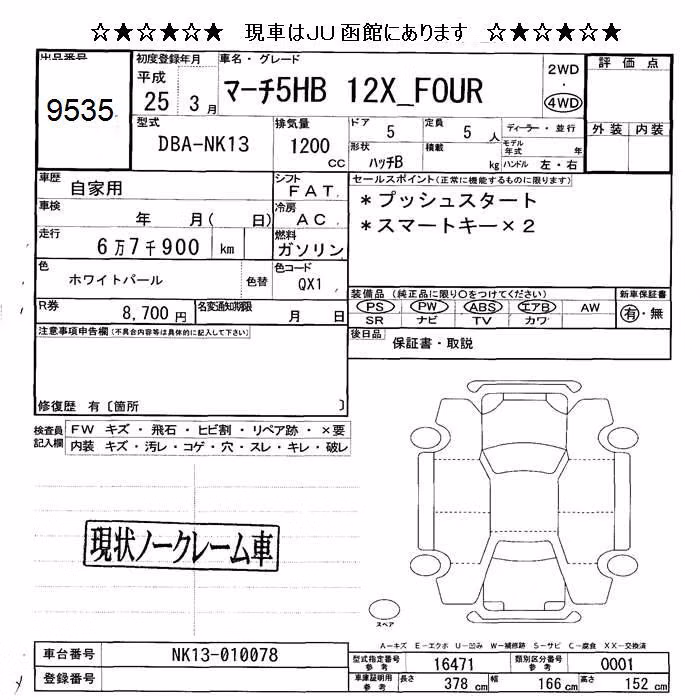 ☆★☆★☆★ 現車はＪＵ函館にあります ☆★☆★☆★
出品番号
9535
初度登録年月
平成
25 3 月
車名・グレード
マーチ5HB 12X_FOUR
2WD
・
4WD
評 価 点
外 装 内 装
型式
DBA-NK13
排気量
1200
CC
ドア
5
定員
5 人
形状
ハッチB
積載
kg
ディーラー・並行
モデル年式 年
ハンドル 左・右
車歴
自家用
シフト
FAT
車検
年 月( 日)
冷房
AC
走行
6万7千900 km
燃料
ガソリン
色
ホワイトパール
色替
色コード
QX1
R券
8,700 円
名変通知期限
月 日
セールスポイント(正常に機能するものに限ります)
＊プッシュスタート
＊スマートキー×2
装備品 (純正品に限り○をつけてください)
新車保証書
PS PW ABS エアB AW
有・無
SR ナビ TV カワ
後日品
保証書・取説
注意事項申告欄(不具合内容等は具体的に記入して下さい)
修復歴 有〔箇所 〕
検査員
記入欄
FW キズ・飛石・ヒビ割・リペア跡・×要
内装 キズ・汚レ・コゲ・穴・スレ・キレ・破レ
現状ノークレーム車
スペア
A－キズ E－エクボ U－凹み W－補修跡 S－サビ C－腐食 XX－交換済
車台番号
NK13-010078
登録番号
型式指定番号
参考
16471
類別区分番号
参考
0001
車庫証明用
参考
長さ 378 cm
幅 166 cm
高さ 152 cm